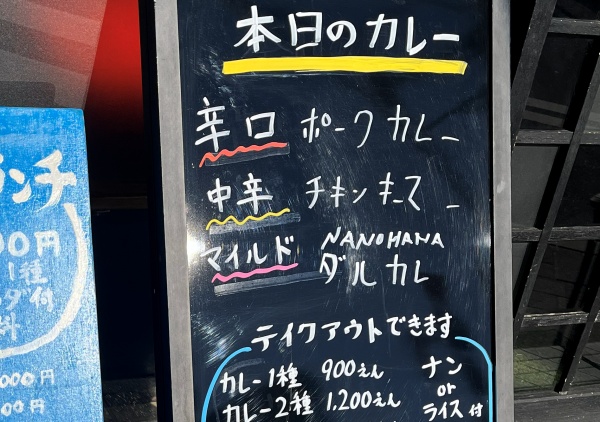 本日のカレー
辛口 ポークカレー
中辛 チキンキーマー
マイルド NANOHANA
ダルカレ
テイクアウトできます
カレー1種 900えん ナン
or
カレー2種 1,200えん ライス付
ランチ
00円
1種
ダ付
料
000円
00円